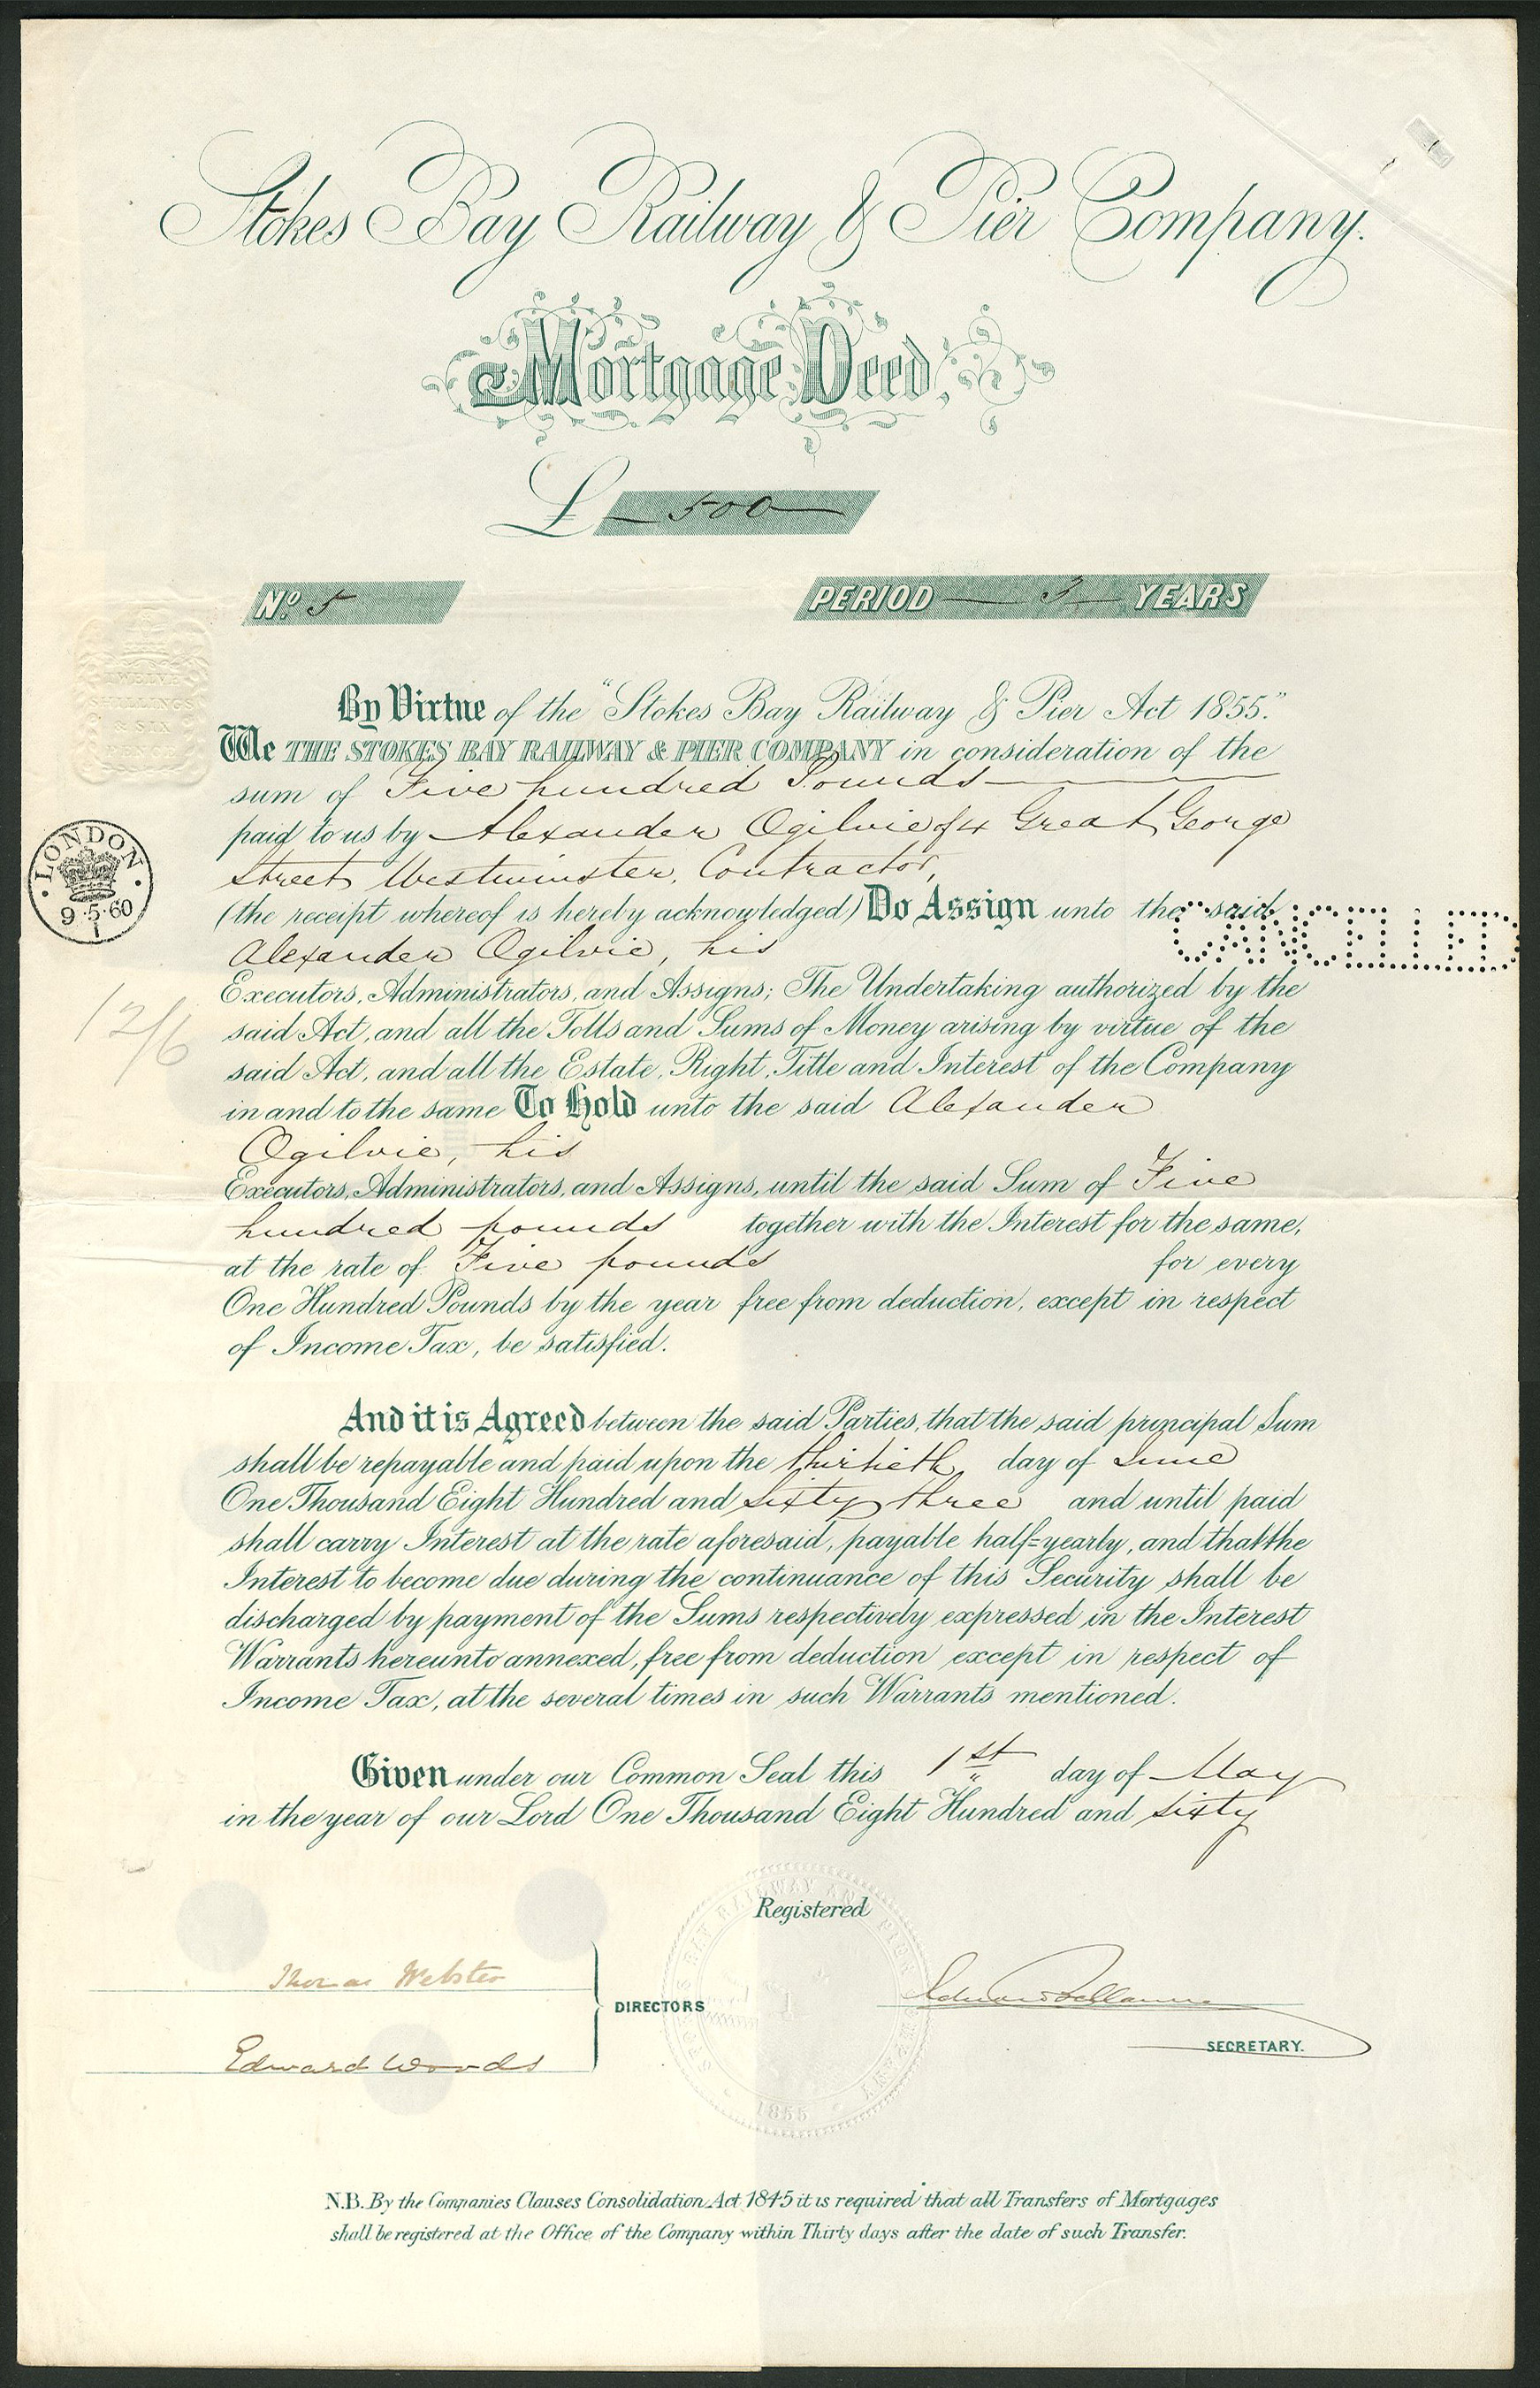 Stokes Bay Railway & Pier Company.
Mortgage Deed,
£ 500
No. 5
PERIOD 3 YEARS
TWELVE
SHILLINGS
& SIX
PENCE
By Virtue of the "Stokes Bay Railway & Pier Act 1855."
We THE STOKES BAY RAILWAY & PIER COMPANY in consideration of the
sum of Five hundred Pounds
paid to us by Alexander Ogilvie of 4 Great George
Street Westminster, Contractor,
LONDON
9.5.60
1
(the receipt whereof is hereby acknowledged) Do Assign unto the said
CANCELLED
Alexander Ogilvie, his
Executors, Administrators, and Assigns; The Undertaking authorized by the
12/6
said Act, and all the Tolls and Sums of Money arising by virtue of the
said Act, and all the Estate, Right, Title and Interest of the Company
in and to the same To Hold unto the said Alexander
Ogilvie, his
Executors, Administrators, and Assigns, until the said Sum of Five
hundred pounds together with the Interest for the same,
at the rate of Five pounds for every
One Hundred Pounds by the year free from deduction, except in respect
of Income Tax, be satisfied.
And it is Agreed between the said Parties, that the said principal Sum
shall be repayable and paid upon the thirtieth day of June
One Thousand Eight Hundred and Sixty three and until paid
shall carry Interest at the rate aforesaid, payable half=yearly, and that the
Interest to become due during the continuance of this Security shall be
discharged by payment of the Sums respectively expressed in the Interest
Warrants hereunto annexed, free from deduction except in respect of
Income Tax, at the several times in such Warrants mentioned.
Given under our Common Seal this 1st day of May
in the year of our Lord One Thousand Eight Hundred and Sixty
Registered
Thomas Webster
Edward Woods
DIRECTORS
SECRETARY.
STOKES BAY RAILWAY AND PIER COMPANY
1855
N.B. By the Companies Clauses Consolidation Act 1845 it is required that all Transfers of Mortgages
shall be registered at the Office of the Company within Thirty days after the date of such Transfer.